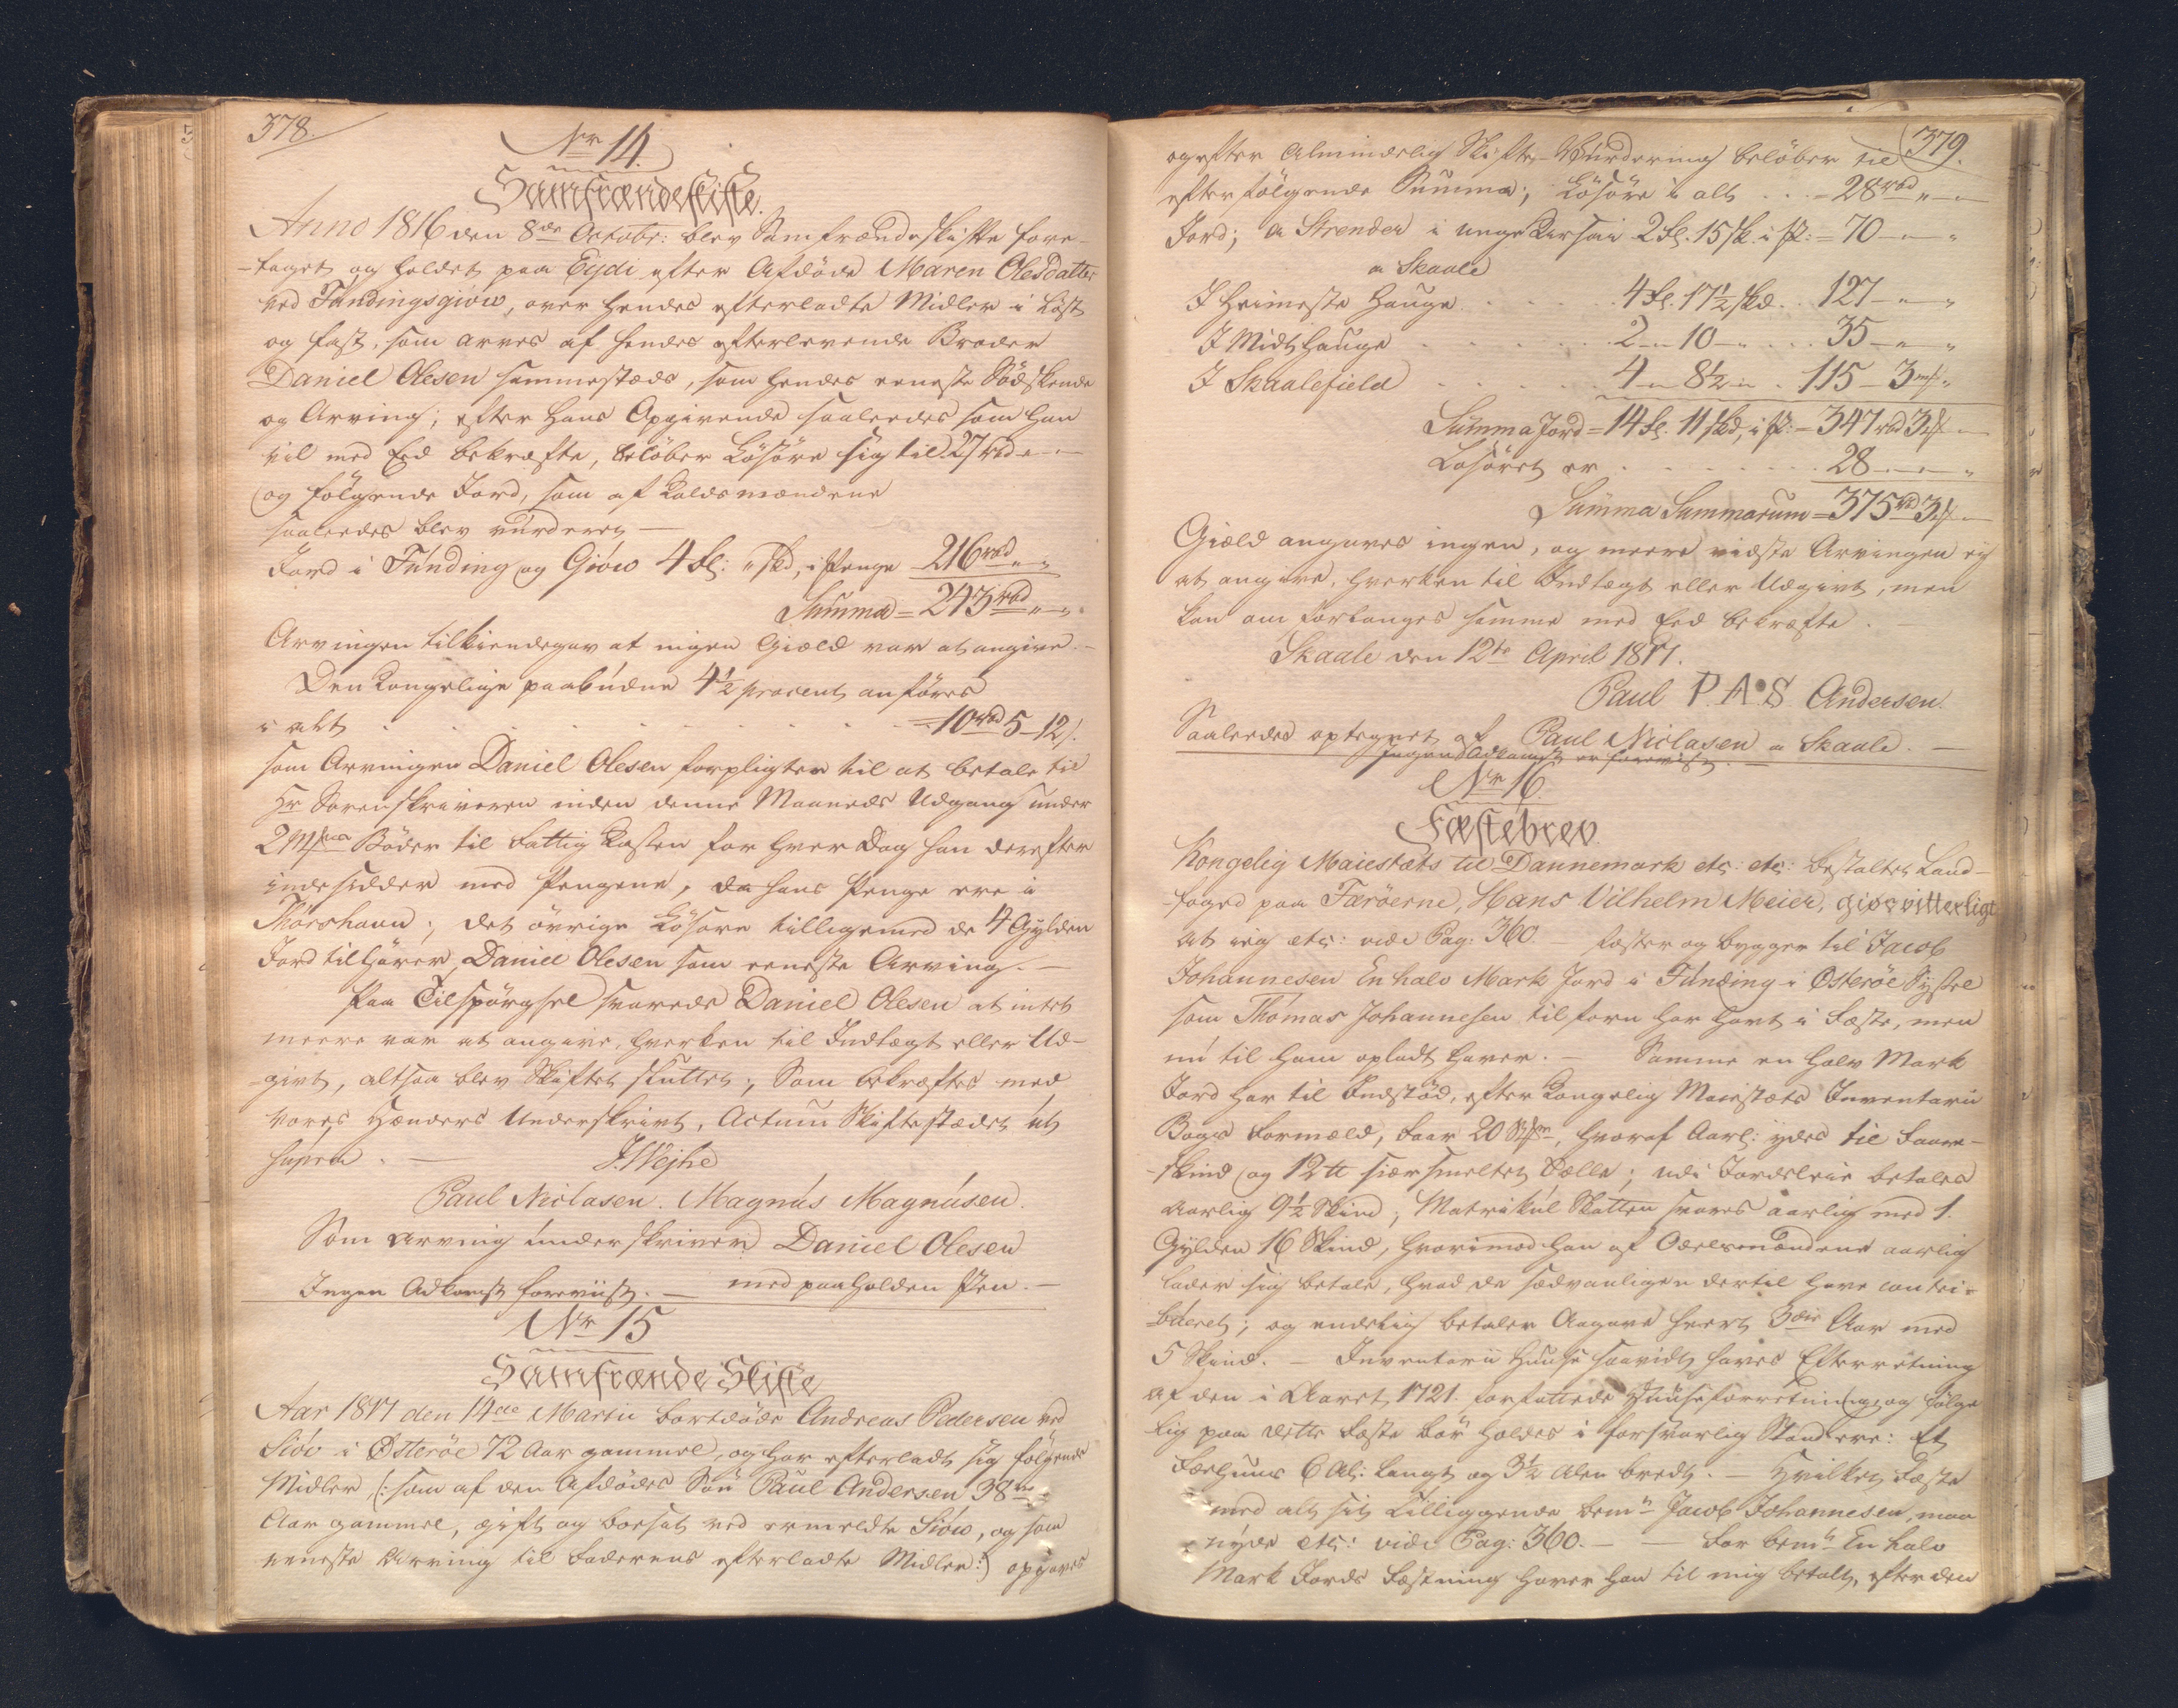 378.
Nr 14.
Samfrændeskifte.
Anno 1816 den 8de Octobr: blev Samfrændeskifte fore-
-taget og holdet paa Eydi efter Afdöde Maren Olesdatter
ved Fundingsgiow, over hendes efterladte Midler i Löst
og fast, som arves af hendes efterlevende Broder
Daniel Olesen sammestæds, som hendes eeneste Södskende
og Arving; efter hans Opgivende saaledes som han
vil med Eed bekræfte, belöber Lösöre sig til 27 rbd „ — „
og fölgende Jord, som af Laldsmændene
saaledes blev vurderet —
Jord i Funding og Giöw 4 Gl: „ skd, i Penge 216 rbd „ „
Summa = 243 rbd „ „
Arvingen tilkiendegav at ingen Giæld var at angive. —
Den Kongelige paabudne 4½ procent anföres
i alt = 10 rbd 5 — 12 s.
som Arvingen Daniel Olesen forpligter til at betale til
Hr Sorenskriveren inden denne Maaneds Udgang under
2 Mks Böder til Fattig Kassen for hver Dag han derefter
indesidder med Pengene, da hans Penge ere i
Thorshavn; det övrige Lösöre tilligemed de 4 Gylden
Jord tilhörer Daniel Olesen som eeneste Arving. —
Paa Tilspörgsel svarede Daniel Olesen at intet
meere var at angive, hverken til Indtægt eller Ud-
-givt, altsaa blev Skiftet sluttet; Som bekræftes med
vores Hænders Underskrivt, Actum Skiftestædet ut
supra. — J. Wejhe
Paul Niclasen. Magnus Magnusen.
Som Arving underskriver Daniel Olesen
Ingen Adkomst foreviist. — med paaholden Pen. —
Nr 15
Samfrænde Skifte
Aar 1817 den 14de Martii bortdöde Andreas Pedersen ved
Siöv i Østeröe 72 Aar gammel, og har efterladt sig fölgende
Midler (: som af den Afdödes Sön Paul Andersen 38
Aar gammel, gift og boesat ved ermeldte Siöw, og som
eeneste Arving til Faderens efterladte Midler :) opgaves
379.
og efter Almindelig Skifte-Vurdering belöber til
efterfölgende Summa; Lösöre i alt . . . = 28 rbd „ — „
Jord; a Strender i unge 2 Gl. 15 sk. i P: = 70 — „ — „
a Skaale
I Heimeste Hauge . . . 4 Gl. 17½ skd. . 127 — „ — „
I Midt Hauge . . . . . . 2 — „ 10 — „ . . . 35 — „ — „
I Skaalefield . . . . . . 4 — „ 8½ — „ . 115 — 3 mk „
Summa Jord = 14 Gl. 11 skd, i P: = 347 rbd 3 mk —
Lösöret er . . . . . . . 28 — „ — „
Summa Summarum = 375 rbd 3 mk —
Giæld angaves ingen, og meere vidste Arvingen ej
at angive, hverken til Indtægt eller Udgivt, men
kan om forlanges samme med Eed bekræfte.
Skaale den 12te April 1817.
Paul P. A. S Andersen.
Saaledes optegnet af Paul Niclasen a Skaale. —
Ingen Adkomst er foreviist. —
Nr 16.
Fæstebrev
Kongelig Maiestæts til Dannemark etc: etc: bestalter Land-
-foged paa Færöerne, Hans Vilhelm Meier, giör vitterligt
at ieg etc: vide Pag: 360. — fæster og bygger til Jacob
Johannesen En halv Mark Jord i Funding i Østeröe Syssel
som Thomas Johannesen tilforn har havt i Fæste, men
nu til ham opladt haver. — Samme en halv Mark
Jord har til Indstöd, efter Kongelig Maiestæts Inventarii
Bogs Formæld, Faar 20 Stkr, hvoraf Aarl: ydes til Faare-
-skind og 12 ℔ siærsmeltet Tælle; udi Jordeleie betales
Aarlig 9½ Skind; Matrikul Skatten svares aarlig med 1.
Gylden 16 Skind, hvorimod han af Odelsmændene aarlig
lader sig betale, hvad de sædvanligen dertil have contri-
-bueret; og endelig betaler Aagave hvert 3die Aar med
5 Skind. — Inventarii Huuse saavidt haves Efterretning
af den i Aaret 1721. forfattede Huuseforretning, og fölge
lig paa dette Fæste bör holdes i forsvarlig Stand ere: Et
Faehuus 6 Al: langt og 3½ Alen bredt. — Hvilket Fæste
med alt sit Tilliggende bemte Jacob Johannesen, maa
nyde etc: vide Pag: 360. — — For bemte En halv
Mark Jords Fæstning haver han til mig betalt, efter den